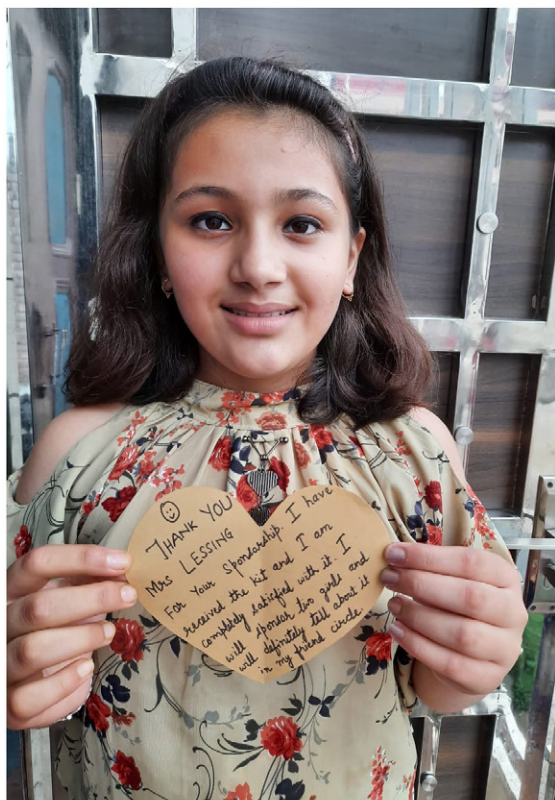 THANK YOU
Mrs LESSING
For Your Spondarship. I have
received the kit and I am
completely saticfied with it. I
will sponsar two girls and
will definitely tell about it
in my friend circle.